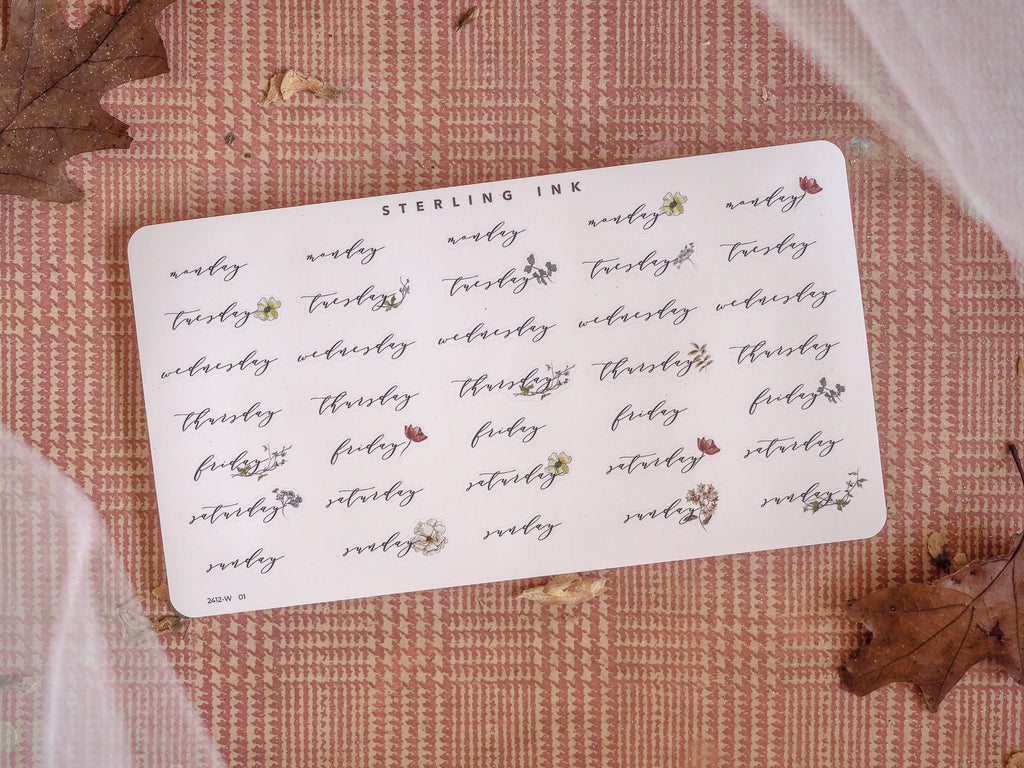 STERLING INK
monday monday monday monday monday
tuesday tuesday tuesday tuesday tuesday
wednesday wednesday wednesday wednesday wednesday
thursday thursday thursday thursday thursday
friday friday friday friday friday
saturday saturday saturday saturday saturday
sunday sunday sunday sunday sunday
2412-W 01